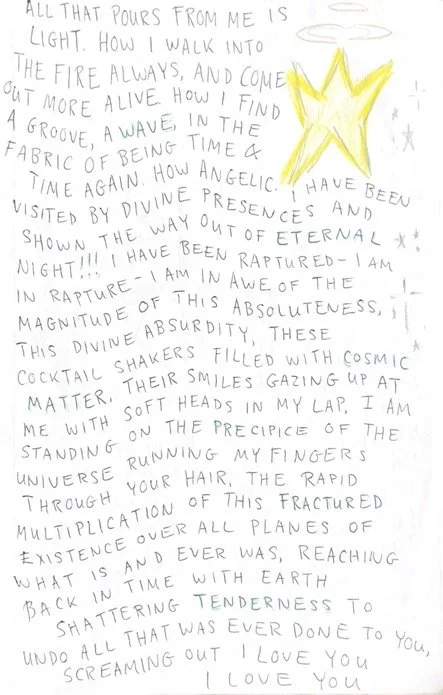 ALL THAT POURS FROM ME IS
LIGHT. HOW I WALK INTO
THE FIRE ALWAYS, AND COME
OUT MORE ALIVE. HOW I FIND
A GROOVE, A WAVE, IN THE
FABRIC OF BEING TIME &
TIME AGAIN. HOW ANGELIC. I HAVE BEEN
VISITED BY DIVINE PRESENCES AND
SHOWN THE WAY OUT OF ETERNAL
NIGHT!!! I HAVE BEEN RAPTURED - I AM
IN RAPTURE - I AM IN AWE OF THE
MAGNITUDE OF THIS ABSOLUTENESS,
THIS DIVINE ABSURDITY, THESE
COCKTAIL SHAKERS FILLED WITH COSMIC
MATTER, THEIR SMILES GAZING UP AT
ME WITH SOFT HEADS IN MY LAP, I AM
STANDING ON THE PRECIPICE OF THE
UNIVERSE RUNNING MY FINGERS
THROUGH YOUR HAIR, THE RAPID
MULTIPLICATION OF THIS FRACTURED
EXISTENCE OVER ALL PLANES OF
WHAT IS AND EVER WAS, REACHING
BACK IN TIME WITH EARTH
SHATTERING TENDERNESS TO
UNDO ALL THAT WAS EVER DONE TO YOU,
SCREAMING OUT I LOVE YOU
I LOVE YOU